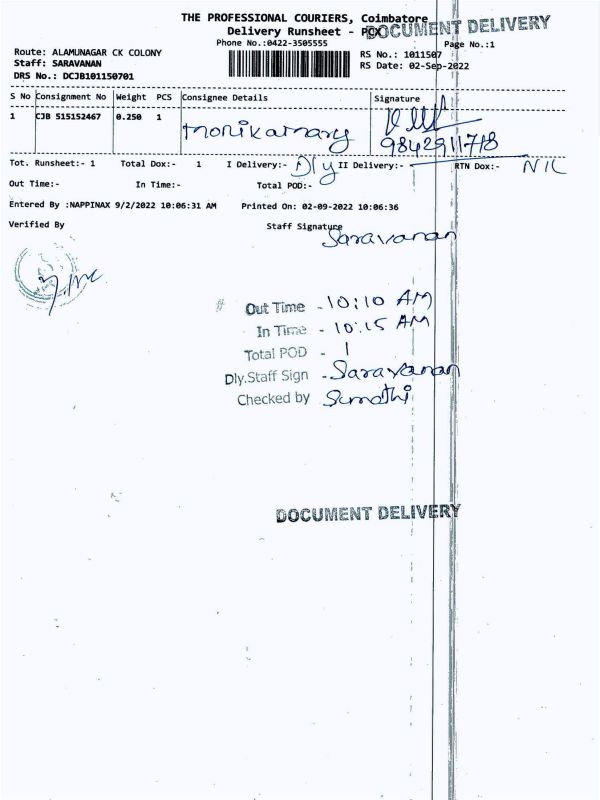 THE PROFESSIONAL COURIERS, Coimbatore
Delivery Runsheet - PCX
DOCUMENT DELIVERY
Phone No.:0422-3505555
Page No.:1
Route: ALAMUNAGAR CK COLONY
RS No.: 1011507
Staff: SARAVANAN
RS Date: 02-Sep-2022
DRS No.: DCJB101150701
S No Consignment No Weight PCS Consignee Details Signature
1 CJB 515152467 0.250 1 monikamary
9842911718
Tot. Runsheet:- 1 Total Dox:- 1 I Delivery:- Dly II Delivery:- RTN Dox:- NIL
Out Time:- In Time:- Total POD:-
Entered By :NAPPINAX 9/2/2022 10:06:31 AM Printed On: 02-09-2022 10:06:36
Verified By Staff Signature
Saravanan
# Out Time - 10:10 AM
In Time - 10:15 AM
Total POD - 1
Dly.Staff Sign - Saravanan
Checked by Sumathi
DOCUMENT DELIVERY